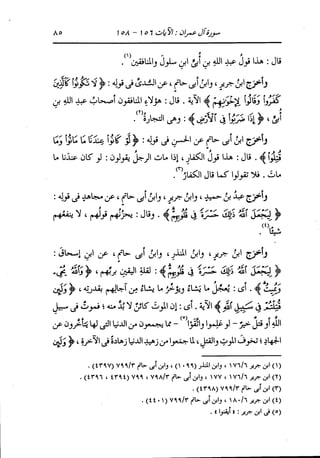 سورة آل عمران : الآيات ١٥٦ - ١٥٨ ٨٥
قال : هذا قولُ عبدِ اللهِ بنِ أُبيٍّ ابنِ سلولَ والمنافقين(١).
وأخرَج ابنُ جريرٍ ، وابنُ أبى حاتمٍ ، عن السدىِّ فى قولِه : ﴿ لَا تَكُونُوا كَالَّذِينَ
كَفَرُوا وَقَالُوا لِإِخْوَانِهِمْ ﴾ الآية . قال : هؤلاء المنافقون أصحابُ عبدِ اللهِ بنِ
أُبيٍّ ، ﴿ إِذَا ضَرَبُوا فِى الْأَرْضِ ﴾ : وهى التجارةُ(٢).
وأخرَج ابنُ أبى حاتمٍ عن الحسنِ فى قولِه : ﴿ لَّوْ كَانُوا عِندَنَا مَا مَاتُوا وَمَا
قُتِلُوا ﴾ . قال : هذا قولُ الكفارِ ، إذا مات الرجلُ يقولون : لو كان عندَنا ما
مات . فلا تقولوا كما قال الكفارُ(٣).
وأخرَج عبدُ بنُ حميدٍ ، وابنُ جريرٍ ، وابنُ أبى حاتمٍ ، عن مجاهدٍ فى قولِه :
﴿ لِيَجْعَلَ اللَّهُ ذَٰلِكَ حَسْرَةً فِى قُلُوبِهِمْ ﴾ . وقال : يَحْزُنُهم قولُهم ، لا ينفعُهم
شيئًا(٤).
وأخرَج ابنُ جريرٍ ، وابنُ المنذرِ ، وابنُ أبى حاتمٍ ، عن ابنِ إسحاقَ :
﴿ لِيَجْعَلَ اللَّهُ ذَٰلِكَ حَسْرَةً فِى قُلُوبِهِمْ ﴾ : لقلةِ اليقينِ بربِّهم ، ﴿ وَاللَّهُ يُحْىِ
وَيُمِيتُ ﴾ . أى : يُعجِّلُ ما يشاءُ ويؤخِّرُ ما يشاءُ مِن آجالِهم بقدرتِه ، ﴿ وَلَئِن
قُتِلْتُمْ فِى سَبِيلِ اللَّهِ ﴾ الآية . أى : إن الموتَ كائنٌ لا بُدَّ منه ؛ فموتٌ فى سبيلِ
اللهِ أو قتلٌ خيرٌ - لو علِموا واتَّقَوا(٥) - مما يجمعون مِن الدنيا التى لها يتأخَّرون عن
الجهادِ ؛ تخوُّفَ الموتِ والقتلِ ، لما جمَعوا مِن زهيدِ الدنيا زهادةً فى الآخرةِ ، ﴿ وَلَئِن
(١) ابن جرير ١٧٦/٦ ، وابن المنذر (١٠٩٦) ، وابن أبى حاتم ٧٩٩/٣ (٤٣٩٧) .
(٢) ابن جرير ١٧٦/٦ ، ١٧٧ ، وابن أبى حاتم ٧٩٨/٣ ، ٧٩٩ (٤٣٩٤ ، ٤٣٩٦) .
(٣) ابن أبى حاتم ٧٩٩/٣ (٤٣٩٨) .
(٤) ابن جرير ١٨٠/٦ ، وابن أبى حاتم ٧٩٩/٣ (٤٤٠١) .
(٥) فى ابن جرير : « أيقنوا » .